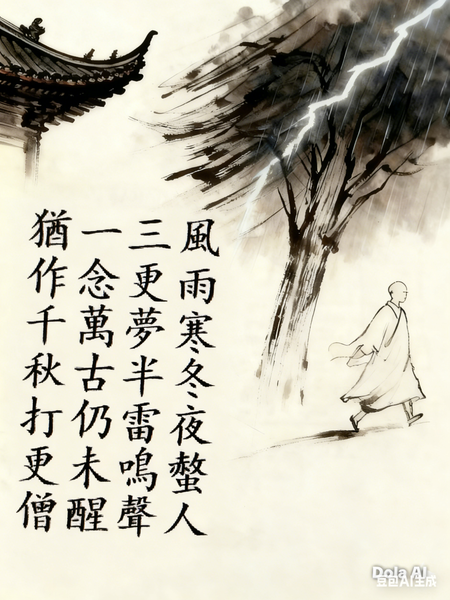 風雨寒冬夜螫人
三更夢半雷鳴聲
一念萬古仍未醒
猶作千秋打更僧
Dola AI
豆包AI生成